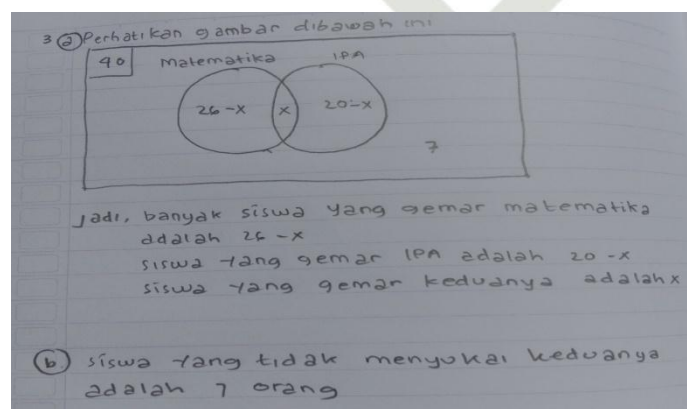 3 (a) Perhatikan gambar dibawah ini
40 Matematika IPA
26-x x 20-x
7
Jadi, banyak siswa yang gemar matematika
adalah 26 -x
siswa yang gemar IPA adalah 20 -x
siswa yang gemar keduanya adalah x
(b.) siswa yang tidak menyukai keduanya
adalah 7 orang